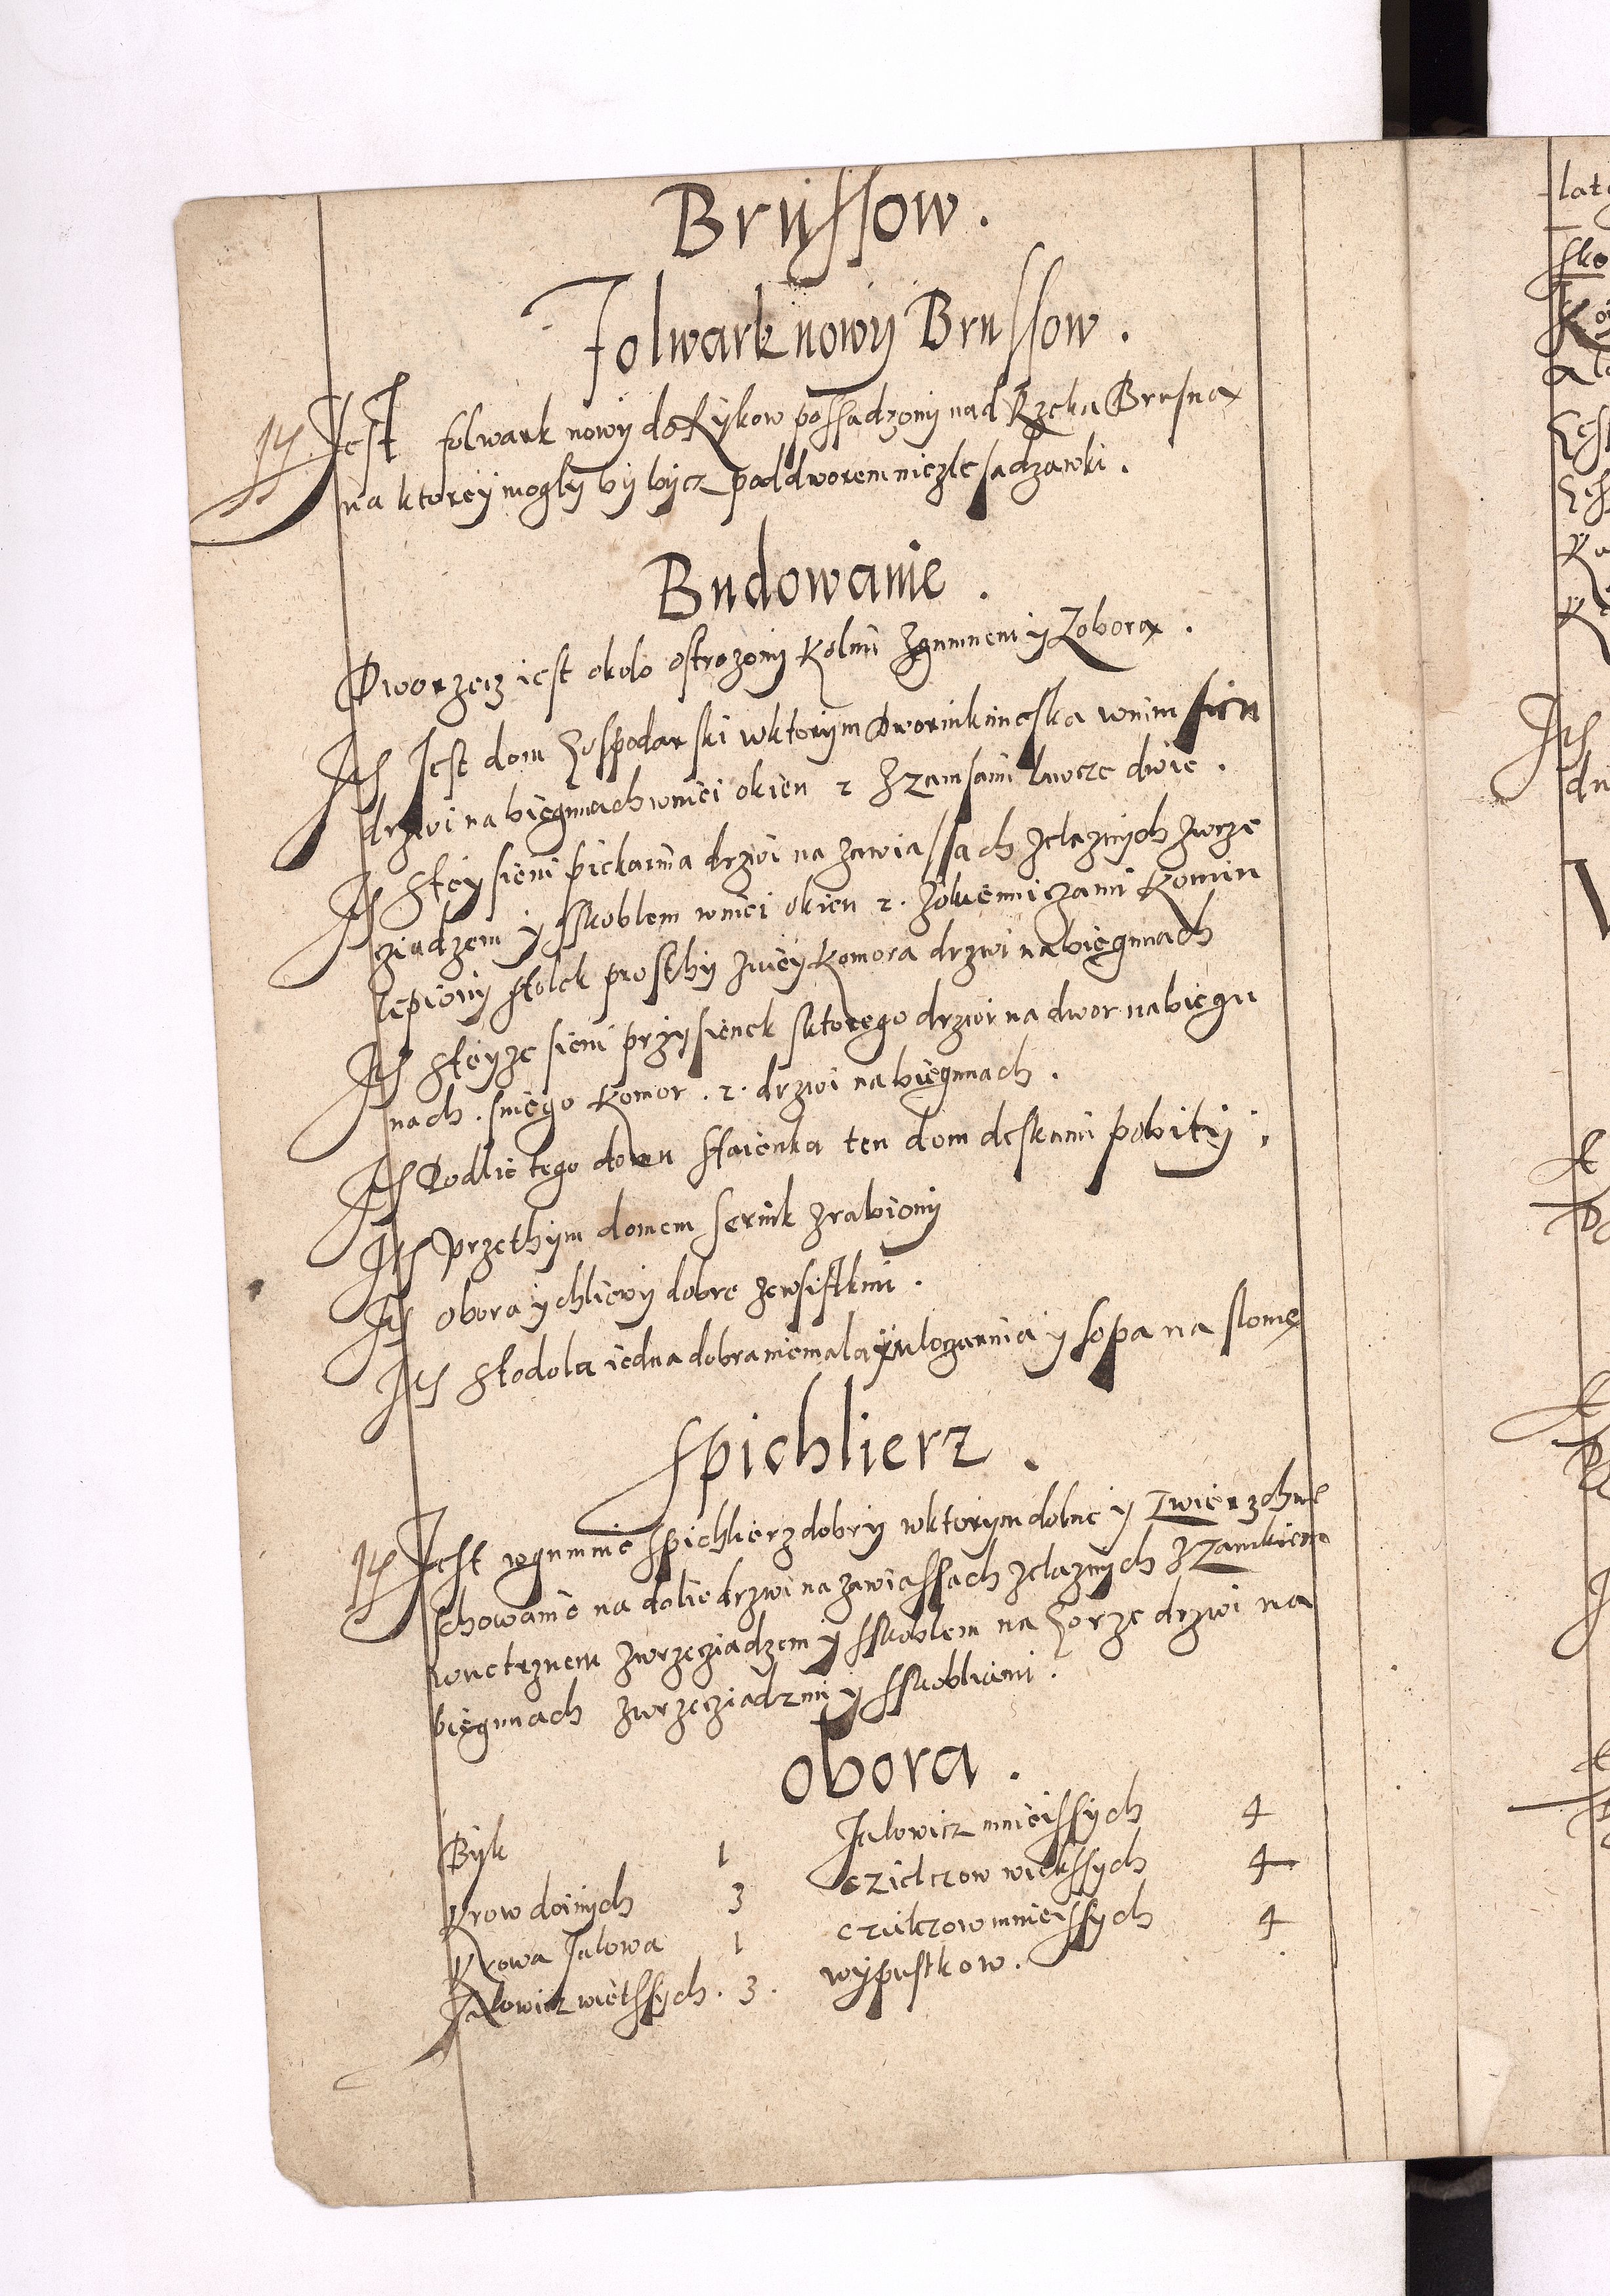 Brussow.
Folwark nowy Brussow.
Jest folwark nowy do Rykow possadzony nad Rzeka Brusna
na ktorey mogly by bycz pod dworem niezle sadzawki.
Budowanie.
Dworzecz iest okolo ostrozony kolmi zgumnem y Zobora.
Its Jest dom Gospodarski wktorym Dwornik mieska wnim sien
drzwi na biegunach wniei okien 2 z ramsami lawcze dwie.
Its stey sieni piekarnia drzwi na zawiassach zelaznych zwrze
cziadzem y sskoblem wniei okien 2. zokienniczami komin
lepiony stolek prosthy zniey komora drzwi na biegunach
Its steyze sieni przysienek sktorego drzwi na dwor na biegu
nach. sniego komor. 2. drzwi na biegunach.
Its Podlie tego domu staienka ten dom deskami pobity.
Its Przethym domem sernik zrabiony
Its obora y chliewy dobre zewsistkim.
Its stodola iedna dobra niemala y ulozarnia y sopa na slome
spichlierz.
Its Jest wgumnie spichlierz dobry wktorym dolne y Zwierzchne
schowanie na dolie drzwi na zawiassach zelaznych z Zamkiem
wnetrznem zwrzecziadzem y sskoblem na Gorze drzwi na
biegunach zwrzecziadzmi y sskobliami.
obora.
Byk 1
Krow doinych 3
Krowa Jalowa 1
Jalowicz wietssych. 3.
Jalowicz mnieissych 4
czielczow wiekssych 4
czielczow mnieissych 4
wypustkow.